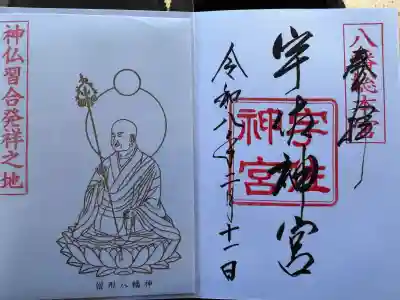 八幡総本宮
奉拝
宇佐神宮
宇佐
神宮
令和八年二月十一日
神仏習合発祥之地
僧形八幡神